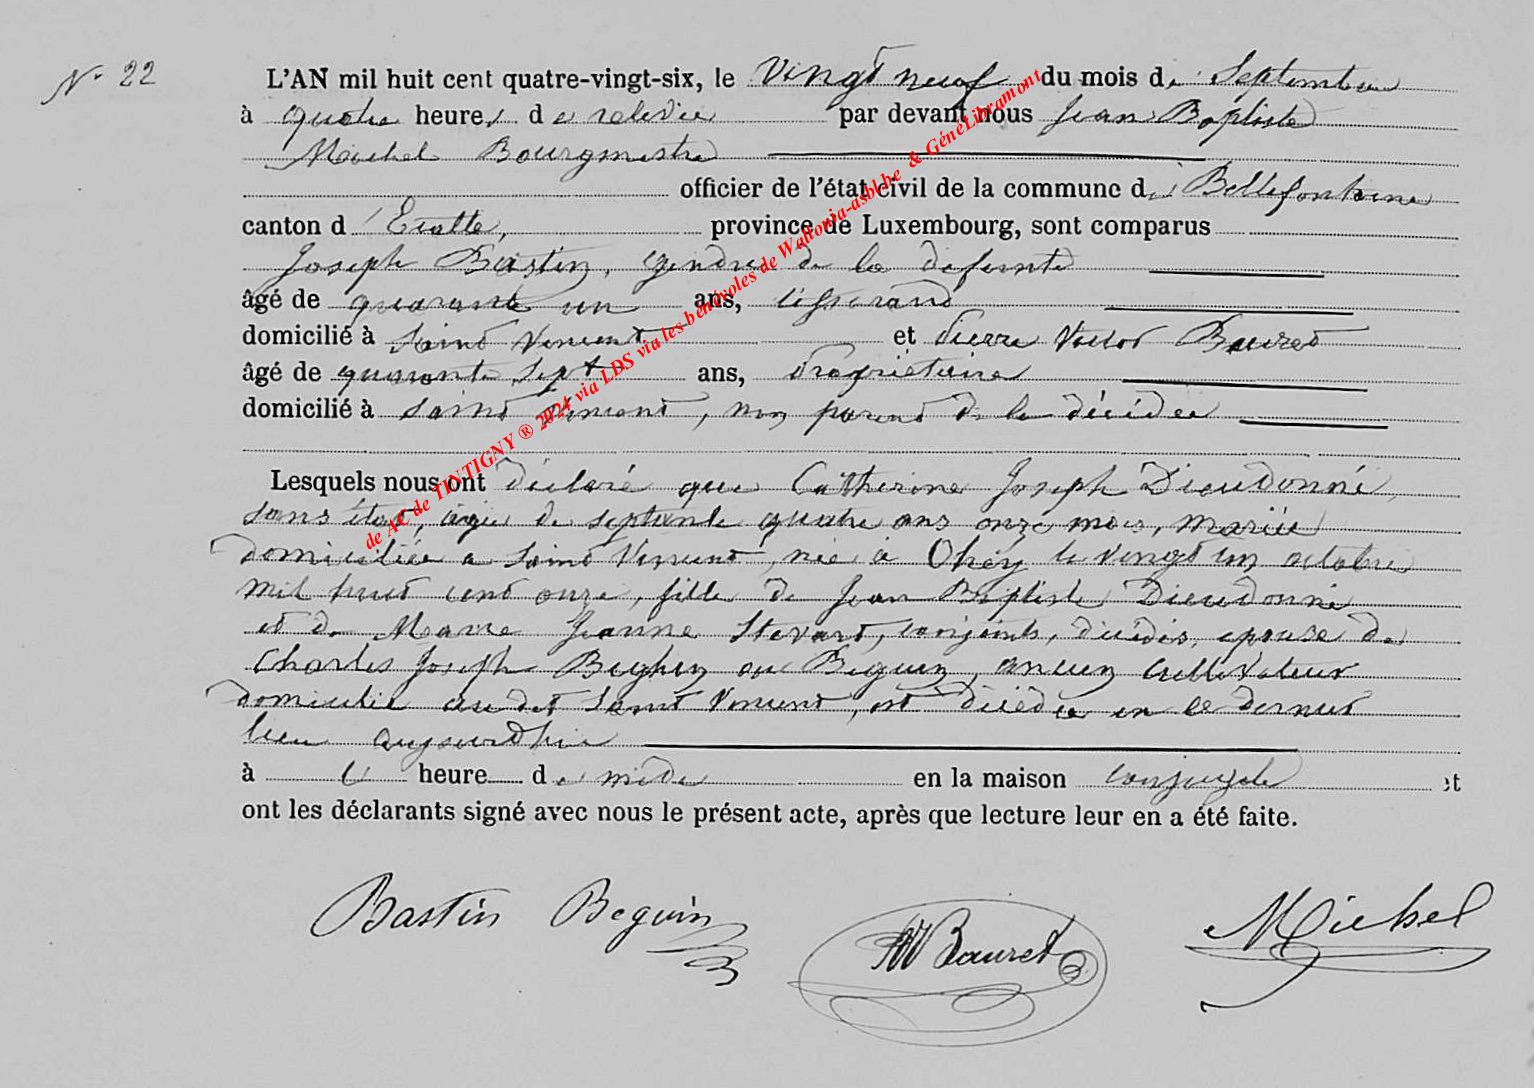 N° 22
L'AN mil huit cent quatre-vingt-six, le vingt neuf du mois de Septembre
à quatre heures de relevée par devant nous Jean Baptiste
Michel Bourgmestre
officier de l'état civil de la commune de Bellefontaine
canton d'Etalle, province de Luxembourg, sont comparus
Joseph Bastin, gendre de la defunte
âgé de quarante un ans, tisserand
domicilié à Saint Vincent et Pierre Victor Bauret
âgé de quarante sept ans, Propriétaire
domicilié à Saint Vincent, non parent de la décédée
Lesquels nous ont déclaré que Catherine Joseph Dieudonné,
sans état, agée de septante quatre ans onze mois, mariée
domiciliée a Saint Vincent, née à Ohey le vingt un octobre
mil huit cent onze, fille de Jean Baptiste Dieudonné
et de Marie Jeanne Stevart, conjoints, décédés, epouse de
Charles Joseph Beghin ou Beguin, ancien cultivateur
domicilié au dit Saint Vincent, est décédée en ce dernier
lieu aujourdhui
à heure de midi en la maison conjugale et
ont les déclarants signé avec nous le présent acte, après que lecture leur en a été faite.
Bastin Beguin Bauret Michel
de AC de TINTIGNY ® 2024 via LDS via les bénévoles de Wallonia-asbl.be & GénéLibramont